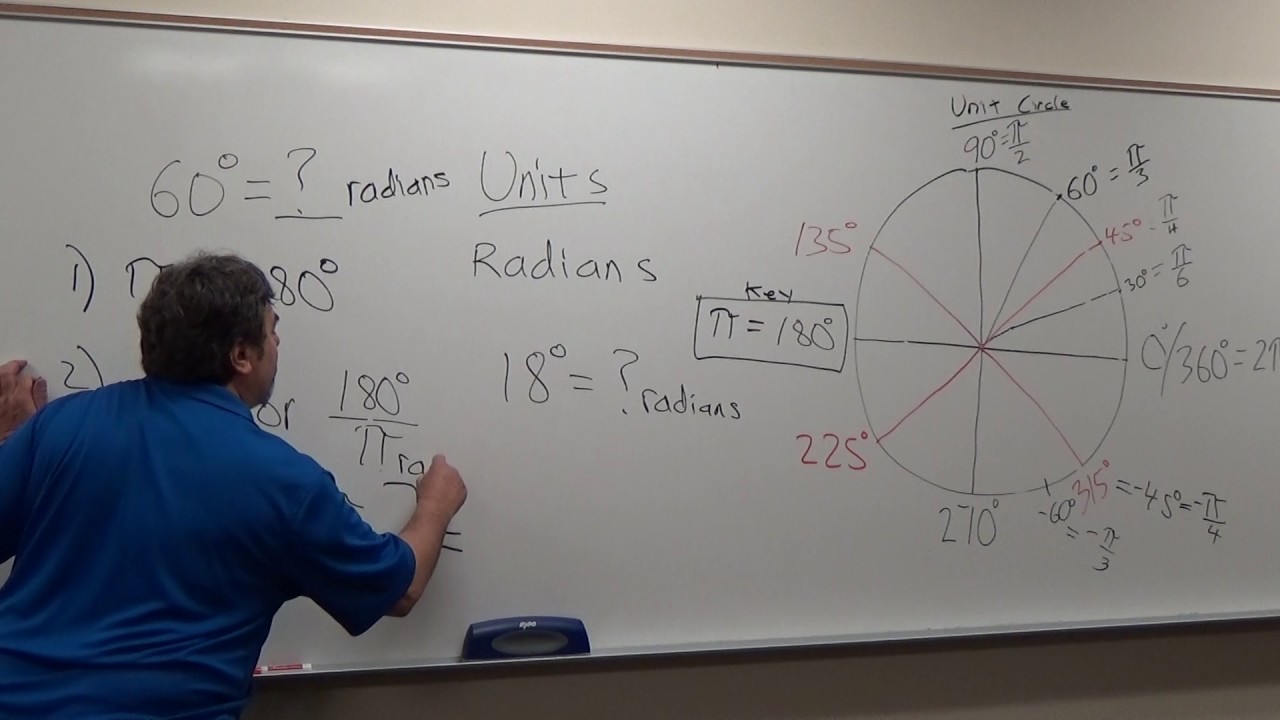 60° = ? radians
Units
1) π 180°
Radians
2)
or 180°/π ra
=
18° = ? radians
Key
π = 180°
Unit Circle
90° = π/2
60° = π/3
45° - π/4
30° = π/6
0°/360° = 2π
135°
225°
270°
-60° = -π/3
315° = -45° = -π/4
expo